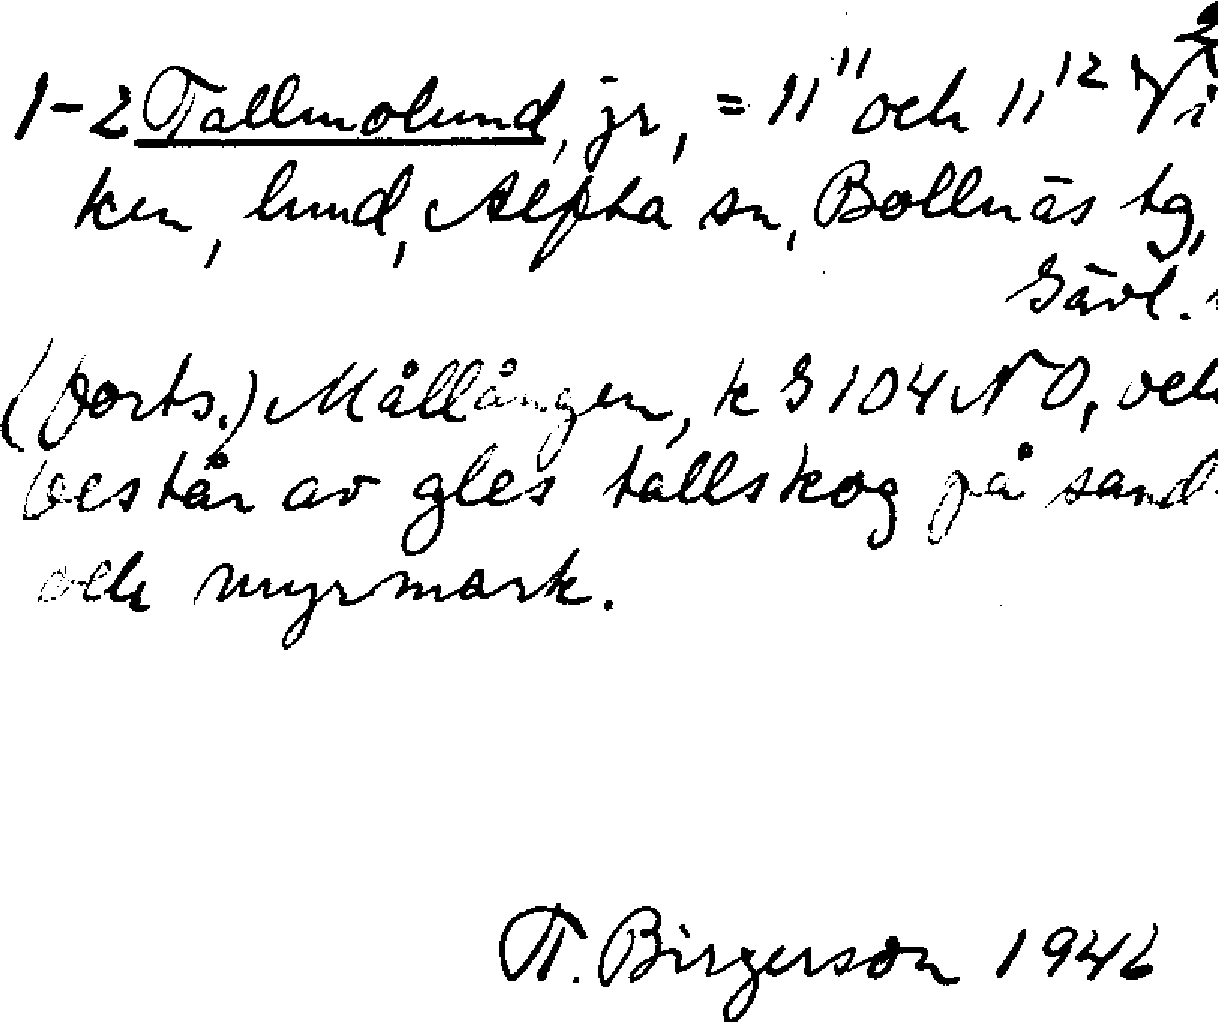 1-2 Tallmolund, jr, = 11¹¹ och 11¹² Vi
ken, lund, Alfta sn, Bollnäs tg,
Gävl.
(forts.) Mållången, k G 104 NO, och
består av gles tallskog på sand-
och myrmark.
T. Birgerson 1946